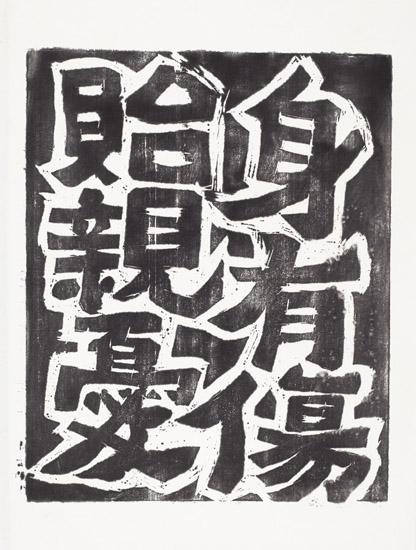 身有傷
貽親憂